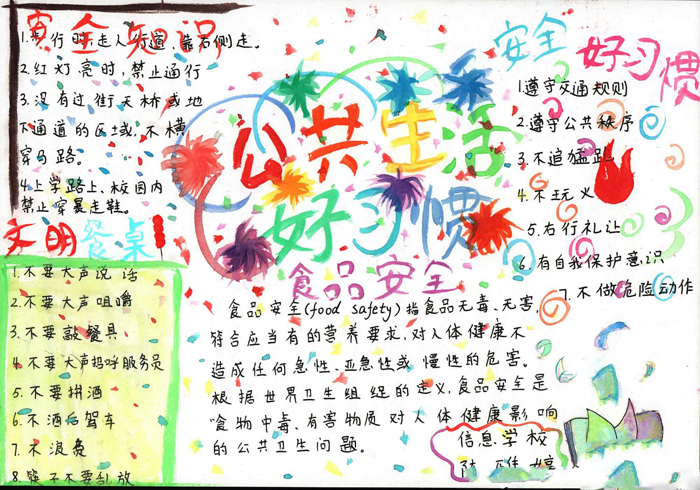 安全知识
1.步行时,走人行道,靠右侧走。
2.红灯亮时,禁止通行
3.没有过街天桥或地
下通道的区域,不横
穿马路。
4.上学路上、校园内
禁止穿暴走鞋。
公共生活
好习惯
安全
好习惯
1.遵守交通规则
2.遵守公共秩序
3.不追猛跑
4.不玩火
5.右行礼让
6.有自我保护意识
7.不做危险动作
文明餐桌
1.不要大声说话
2.不要大声咀嚼
3.不要敲餐具
4.不要大声招呼服务员
5.不要拼酒
6.不酒后驾车
7.不浪费
8.筷子不要乱放
食品安全
食品安全(food safety)指食品无毒、无害,
符合应当有的营养要求,对人体健康不
造成任何急性、亚急性或慢性的危害。
根据世界卫生组织的定义,食品安全是
"食物中毒、有害物质对人体健康影响
的公共卫生问题。
信息学校